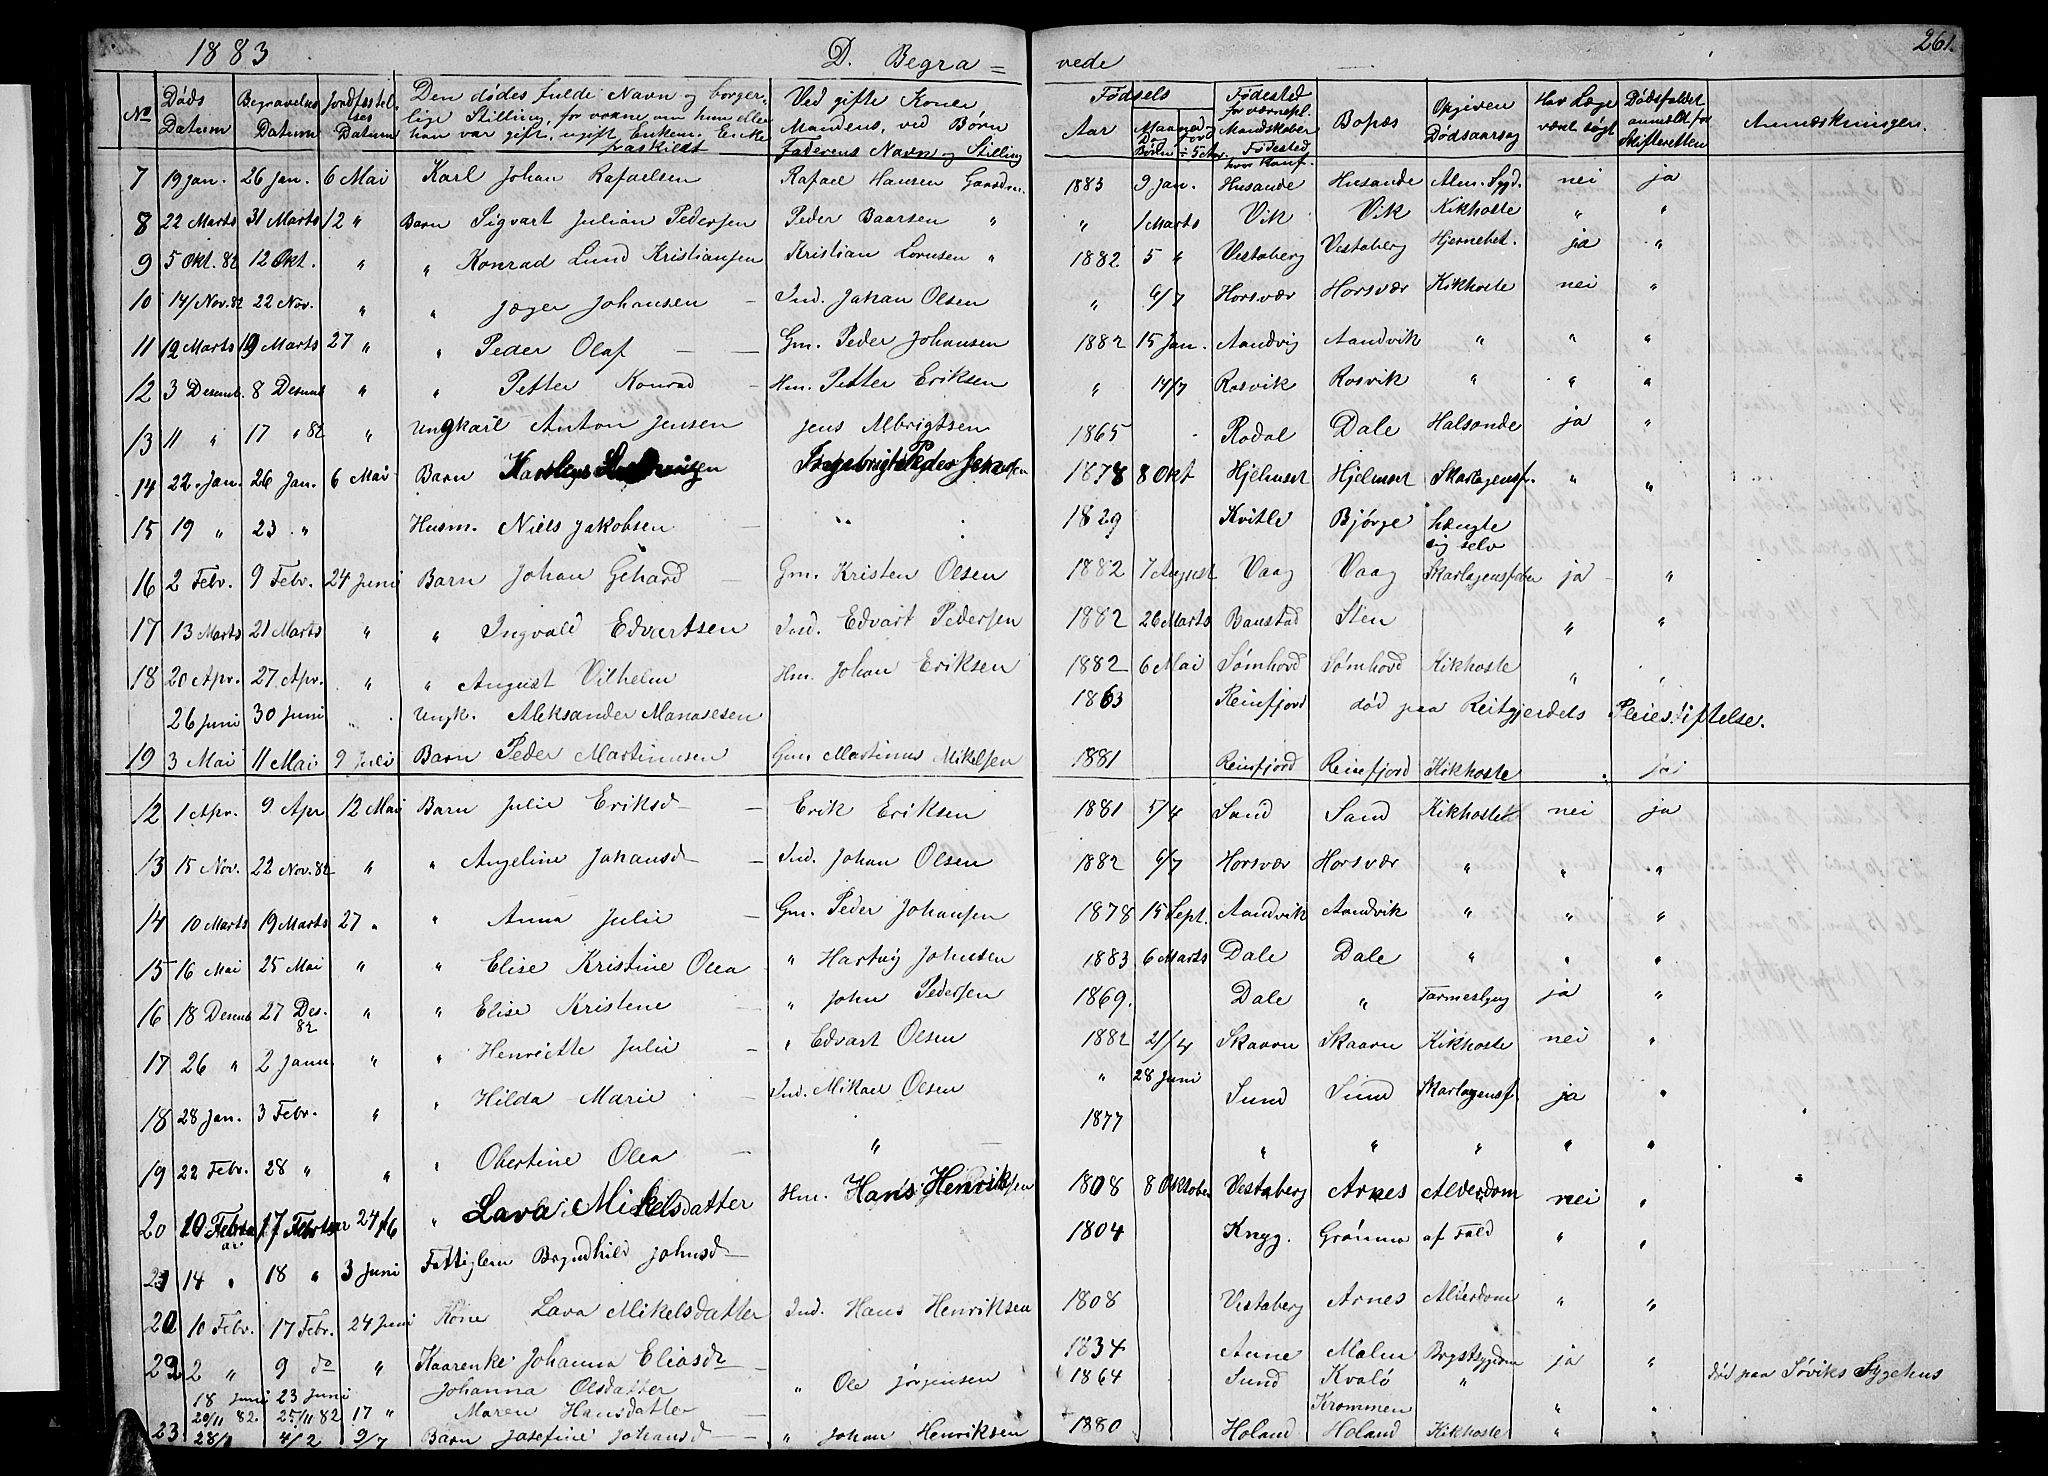 1883 D. Begra= vede 261.
No Døds Datum Begravelses Datum Jordfæstelses Datum Den dødes fulde Navn og borgerlige Stilling, for voxne, om hun eller han var gift, ugift, Enkem. Enke fraskildt Ved gifte Koner, Mandens, ved Børn Faderens Navn og Stilling Fødsels Aar Fødested Bopæl Opgiven Dødsaarsag Har Læge været søgt Dødsfaldet anmeldt for Skifteretten Anmærkninger.
7 19 Jan. 26 Jan. 6 Mai Karl Johan Rafaelsen Rafael Hansen 1883 9 Jan. Husande Husande Alm. Sygd. nei ja
8 22 Marts 31 Marts 12 " Barn Sigvart Julian Pedersen Peder Baarsen " " 1 Marts Vik Vik Kikhoste " "
9 5 Okt. 82 12 Okt. " " Konrad Lund Kristiansen Kristian Lornsen " 1882 5 " Vestaberg Vestaberg Hjernebet. ja "
10 14/Nov. 82 22 Nov. " " Jæger Johansen Ind. Johan Olsen " 6/7 Horsvær Horsvær Kikhoste nei "
11 12 Marts 19 Marts 27 " " Peder Olaf Gm. Peder Johansen 1882 15 Jan. Aandvig Aandvik " " "
12 3 Desemb. 8 Desemb " " Petter Konrad Hm. Petter Eriksen " 14/7 Rosvik Rosvik " " "
13 11 " 17 " 82 " Ungkarl Anton Jensen Jens Albrigtsen 1865 Rodal Dale Halsonde ja "
14 22. Jan. 26 Jan. 6 Mai Barn Ingebrigt Peder Johansen 1878 8 Okt Hjelmset Hjelmset Skarlagensf. " "
15 19 " 23. " Husm. Niels Jakobsen " 1829 Kvitle Bjørge hængte sig selv
16 2 Febr. 9 Febr. 24 Juni Barn Johan Gehard Gm. Kristen Olsen 1882 7 August Vaag Vaag Skarlagensfeber ja "
17 13 Marts 21 Marts " " Ingvald Edvertsen Ind. Edvart Pedersen 1882 26 Marts Baustad Sten " "
18 20 Apr. 27 Apr. " " August Vilhelm Hm. Johan Eriksen 1882 6 Mai Sømhovd Sømhovd Kikhoste " "
26 Juni 30 Juni " Ungk. Aleksander Manasesen 1863 Reinfjord død paa Reitgjerdets Pleiestiftelse.
19 3 Mai 11 Mai 9 Juli Barn Peder Martinusen Gm. Martinus Mikelsen 1881 Reinfjord Reinfjord Kikhoste ja
12 1 Apr. 9 Apr 12 Mai Barn Julie Eriksd Erik Eriksen 1881 5/4 Sand Sand Kikhoste nei ja
13 15 Nov. 22 Nov. 82 " " Angeline Johansd Ind. Johan Olsen 1882 6/7 Horsvær Horsvær " " "
14 10 Marts 19 Marts 27 " " Anna Julie Gm. Peder Johansen 1878 15 Sept. Aandvik Aandvik " " "
15 16 Mai 25 Mai " " Elise Kristine Olea " Hartvig Johnsen 1883 6 Marts Dale Dale " " "
16 18 Desemb 27 Des. 82 " " Elise Kristene " John Pedersen 1869. Dale " ja "
17 26 " 2 Janu. " " Henriette Julie " Edvart Olsen 1882 21/4 Skaarn Skaarn Kikhoste nei "
18 28 Jan. 3 Febr. " " Hilda Marie Ind. Mikael Olsen " 28 Juni Sund Sund Skarlagensf. ja "
19 22 Febr. 28 " " " Obertine Olea " 1877 " " " " "
20 10 Februari 17 Februar 24/6 " Lava Mikelsdatter Hm. Hans Henriksen 1808 8 Oktober Vestaberg Arnes Alderdom nei "
21 14 " 18 " 3 Juni Fattiglem Johnsd 1804 Knyg. Grønmo af Fald " "
20 10 Febr. 17 Febr. 24 Juni Kone Lava Mikelsdatter Ind. Hans Henriksen 1808 Vestaberg Arnes Alderdom " "
22 2 " 9 do " Kaarenke Johanna Eliasd 1834 Anne Malm Brystsygdom ja "
18 Juni 23 Juni Johanna Olsdatter " Ole Jørgensen 1864 Sund Kvalø " død paa Søviks Sygehus
20/11 82. 25/11 82 17 " Maren Hansdatter Krommen " "
23 4/2 9/7 Barn Josefine Johansd " Johan Henriksen 1880 Holand Holand Kikhoste "